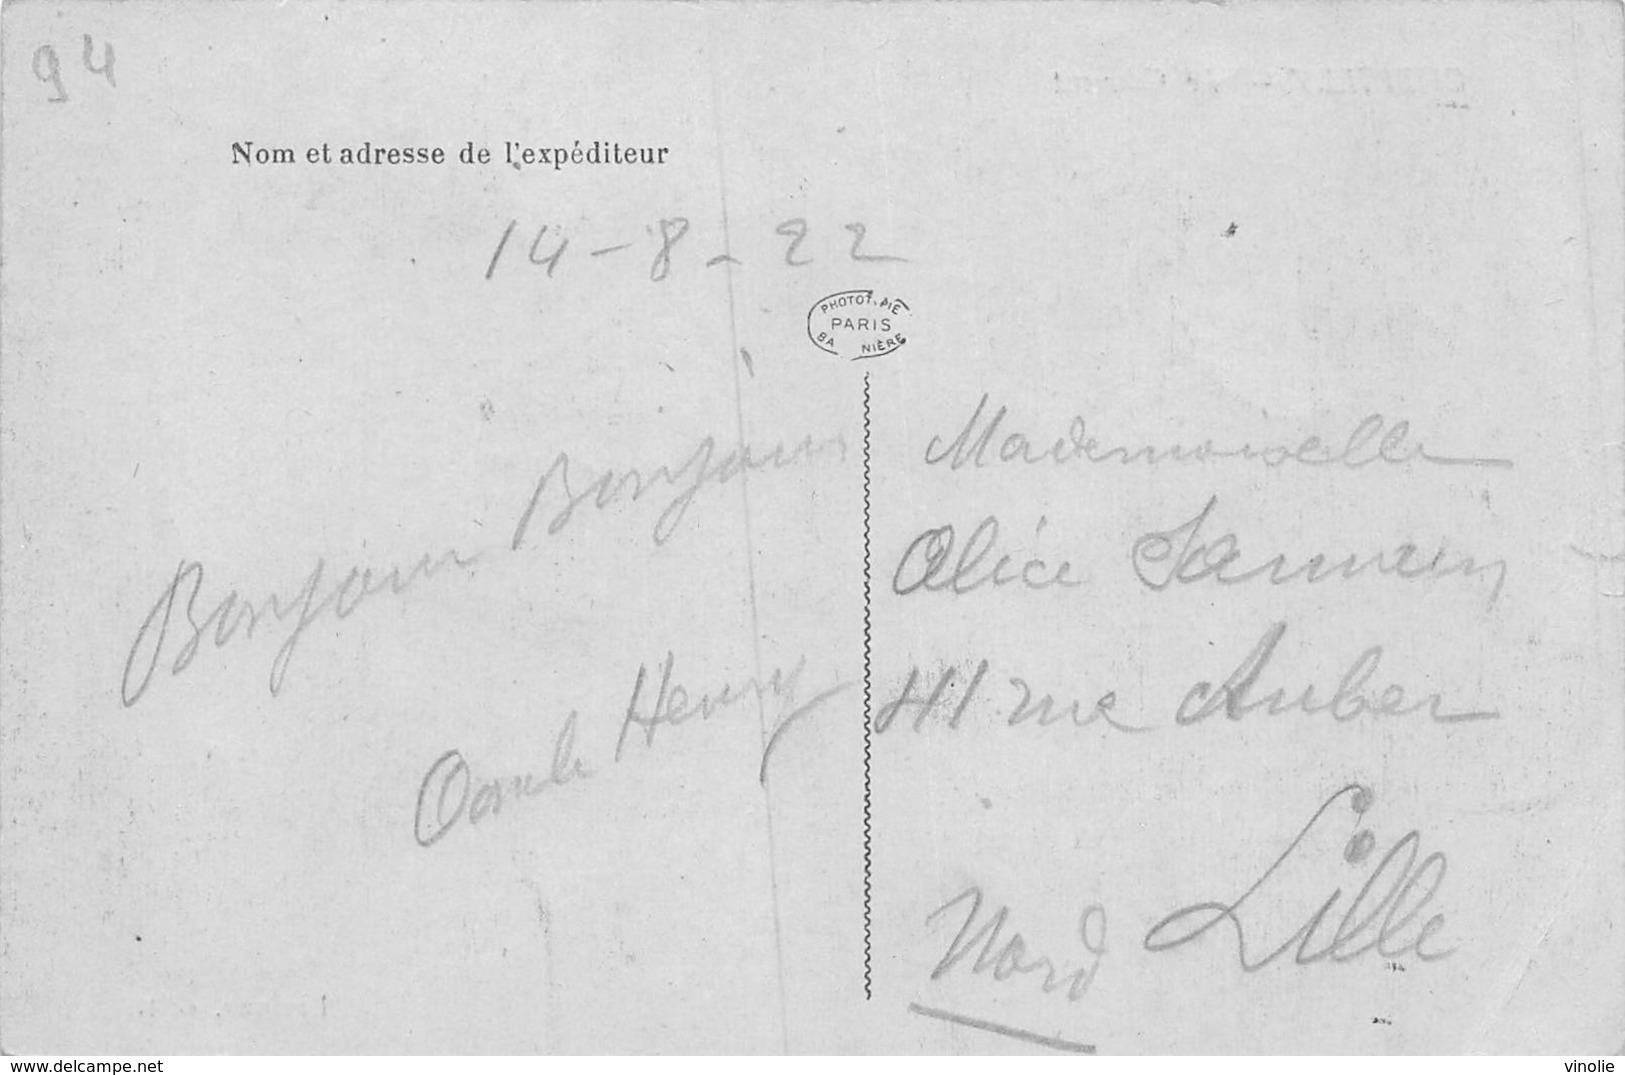 94
Nom et adresse de l'expéditeur
14-8-22
PHOTOTYPIE
PARIS
BA NIÈRE
Bonjour Bonjour
Henry
Mademoiselle
Alice
41 rue Auber
Lille
Nord
www.delcampe.net
vinolie